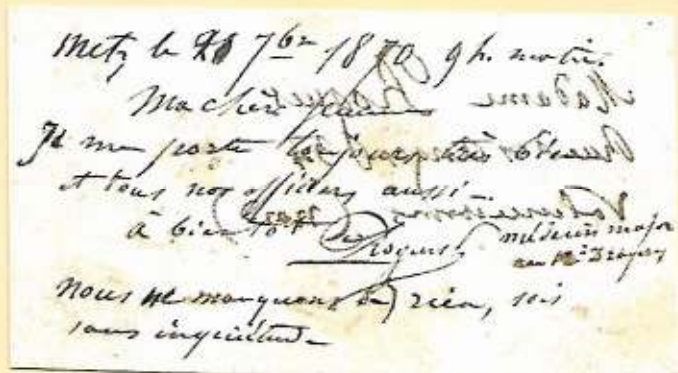 Metz le 7bre 1870 9h. matin.
Ma chère femme
Je me porte toujours très bien
et tous nos officiers aussi.
à bientôt
médecin major
au Dragons
nous ne manquons de rien, sois
sans inquiétude
Madame
Rue
Valenciennes